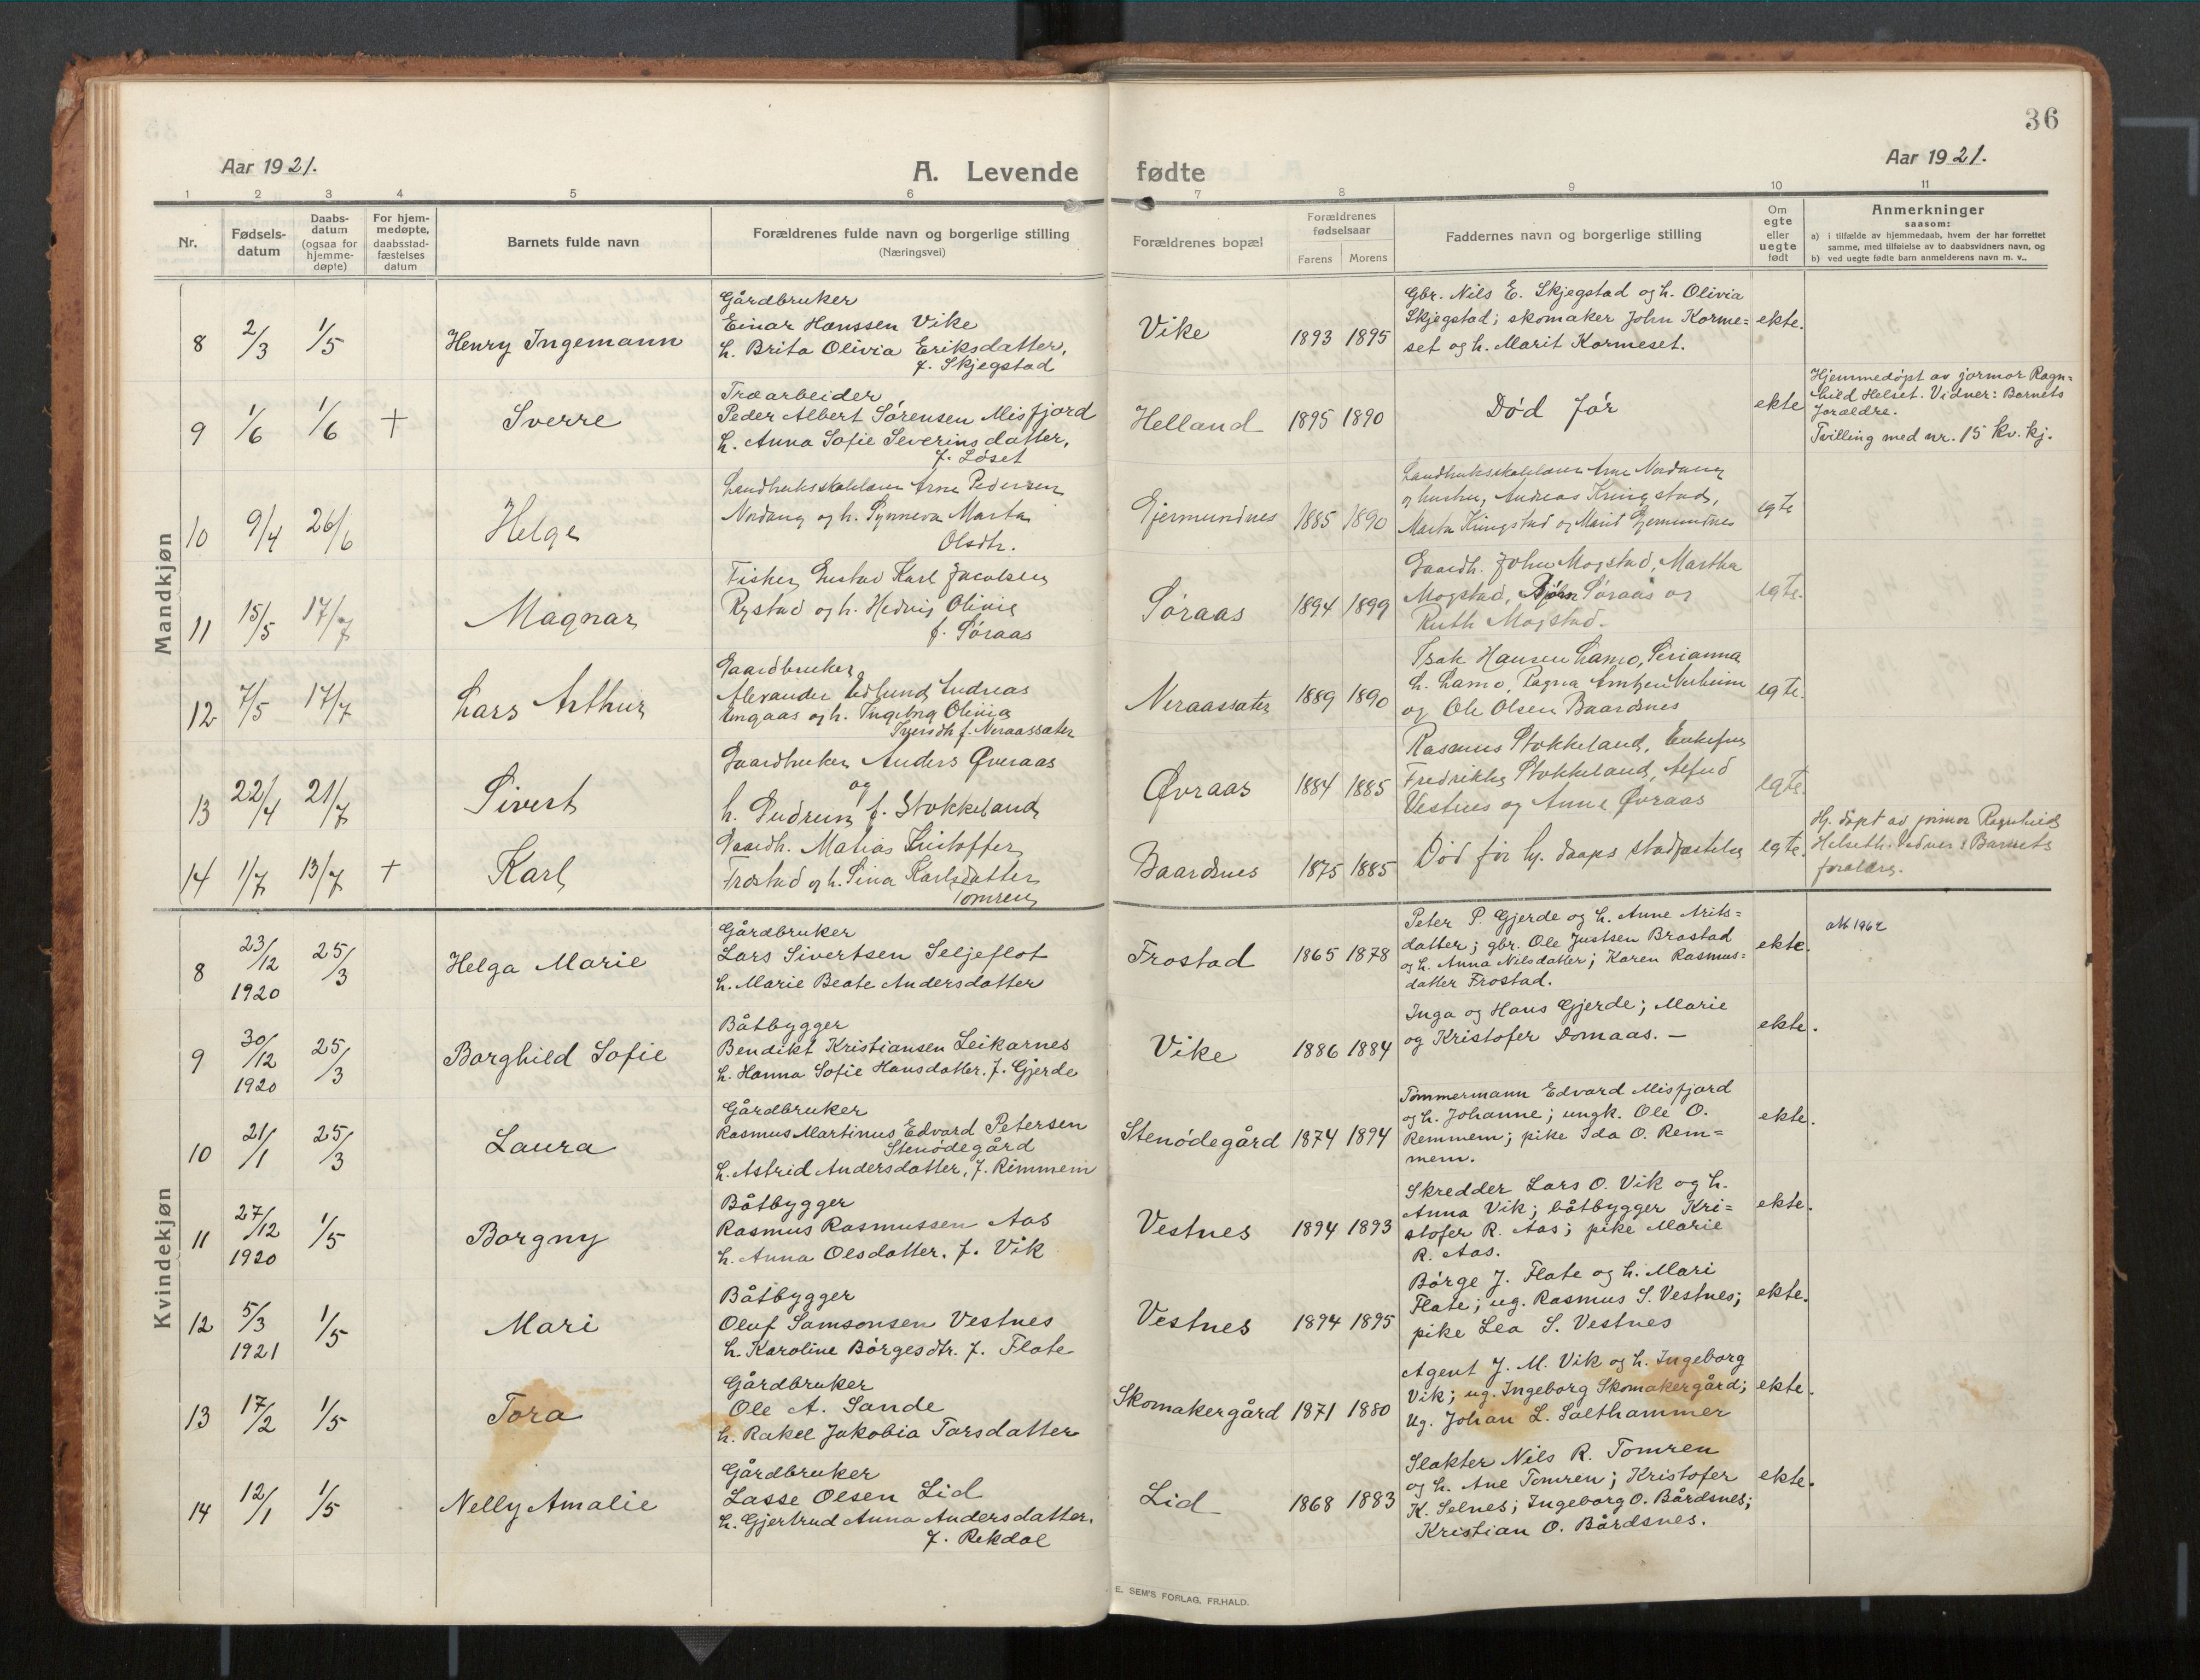 36
Aar 1921.
A. Levende fødte
Aar 1921.
1 2 3 4 5 6 7 8 9 10 11
Nr.
Fødsels-
datum
Daabs-
datum
(ogsaa for
hjemme-
døpte)
For hjem-
medøpte,
daabsstad-
fæstelses
datum
Barnets fulde navn
Forældrenes fulde navn og borgerlige stilling
(Næringsvei)
Forældrenes bopæl
Forældrenes
fødselsaar
Farens Morens
Faddernes navn og borgerlige stilling
Om
egte
eller
uegte
født
Anmerkninger
saasom:
a) i tilfælde av hjemmedaab, hvem der har forrettet
samme, med tilføielse av to daabsvidners navn, og
b) ved uegte fødte barn anmelderens navn m. v..
Mandkjøn
8 2/3 1/5 Henry Ingemann
Gårdbruker
Einar Hanssen Vike
h. Brita Olivia Eriksdatter,
f. Skjegstad
Vike 1893 1895
Gbr. Nils E. Skjegstad og h. Olivia
Skjegstad; skomaker John Korme=
set og h. Marit Kormeset.
ekte.
9 1/6 1/6 + Sverre
Træarbeider
Peder Albert Sørensen Misfjord
h. Anna Sofie Severinsdatter,
f. Løset
Helland 1895 1890
Død før
ekte
Hjemmedøpt av jormor Ragn=
hild Helset. Vidner: Barnets
forældre.
Tvilling med nr. 15 kv. kj.
10 9/4 26/6 Helge
Landbruksskolelærer Arne Pedersen
Nordang og h. Synneva Marta
Olsdtr.
Gjermundnes 1885 1890
Landbruksskolelærer Arne Nordang
og hustru, Andreas Kringstad,
Marta Kringstad og Marit Gjermundnes
egte
11 15/5 17/7 Magnar
Fisker Gustav Karl Jacobsen
Rystad og h. Hedvig Olivie
f. Søraas
Søraas 1894 1899
Gaardb. John Mogstad, Martha
Mogstad, Bjørn Søraas og
Ruth Mogstad.
egte.
12 7/5 17/7 Lars Arthur
Gaardbruker
Alexander Edlund Andreas
Engaas og h. Ingeborg Olivia
Iversdtr f. Neraassæter
Neraassæter 1889 1890
Isak Hansen Lamo, Serianna
h. Lamo, Ragna Arntzen Verheim
og Ole Olsen Baardsnes
egte.
13 22/4 21/7 Sivert
Gaardbruker Anders Øveraas
og
h. Gudrun f. Stokkeland
Øvraas 1884 1885
Rasmus Stokkeland, Enkefru
Fredrikke Stokkeland, Alfred
Vestnes og Anne Øvraas
egte.
14 1/7 13/7 + Karl
Gaardb. Matias Kristoffer
Frostad og h. Sina Karlsdatter
Tomren
Baardsnes 1875 1885
Død før hj. daaps stadfæstelse
egte.
Hj. døpt av jormor Ragnhild
Helseth. Vidner: Barnets
forældre.
Kvindekjøn
8 23/12 1920 25/3 Helga Marie
Gårdbruker
Lars Sivertsen Seljeflot
h. Marie Beate Andersdatter
Frostad 1865 1878
Peter P. Gjerde og h. Anne Arits=
datter; gbr. Ole Justsen Brastad
og h. Anna Nilsdatter; Karen Rasmus=
datter Frostad.
ekte.
att 1962
9 30/12 1920 25/3 Borghild Sofie
Båtbygger
Bendikt Kristiansen Leikarnes
h. Hanna Sofie Hansdatter. f. Gjerde
Vike 1886 1884
Inga og Hans Gjerde; Marie
og Kristofer Domaas. —
ekte.
10 21/1 25/3 Laura
Gårdbruker
Rasmus Martinus Edvard Petersen
Stenødegård
h. Astrid Andersdatter, f. Rimmem
Stenødegård 1874 1894
Tømmermann Edvard Misfjord
og h. Johanne; ungk. Ole O.
Remmem; pike Ida O. Rem=
mem.
ekte.
11 27/12 1920 1/5 Borgny
Båtbygger
Rasmus Rasmussen Aas
h. Anna Olsdatter. f. Vik
Vestnes 1894 1893
Skredder Lars O. Vik og h.
Anna Vik; båtbygger Kri=
stofer R. Aas; pike Marie
R. Aas.
ekte.
12 5/3 1921 1/5 Mari
Båtbygger
Oluf Samsonsen Vestnes
h. Karoline Børgesdtr. f. Flate
Vestnes 1894 1895
Børge J. Flate og h. Mari
Flate; ug. Rasmus S. Vestnes;
pike Lea S. Vestnes
ekte.
13 17/2 1/5 Tora
Gårdbruker
Ole A. Sande
h. Rakel Jakobia Tarsdatter
Skomakergård 1871 1880
Agent J. M. Vik og h. Ingeborg
Vik; ug. Ingeborg Skomakergård;
Ug. Johan L. Salthammer
ekte.
14 12/1 1/5 Nelly Amalie
Gårdbruker
Lasse Olsen Lid
h. Gjertrud Anna Andersdatter.
f. Rekdal
Lid 1868 1883
Slakter Nils R. Tomren
og h. Ane Tomren; Kristofer
K. Selnes; Ingeborg O. Bårdsnes;
Kristian O. Bårdsnes.
ekte.
E. SEM'S FORLAG, FR.HALD.